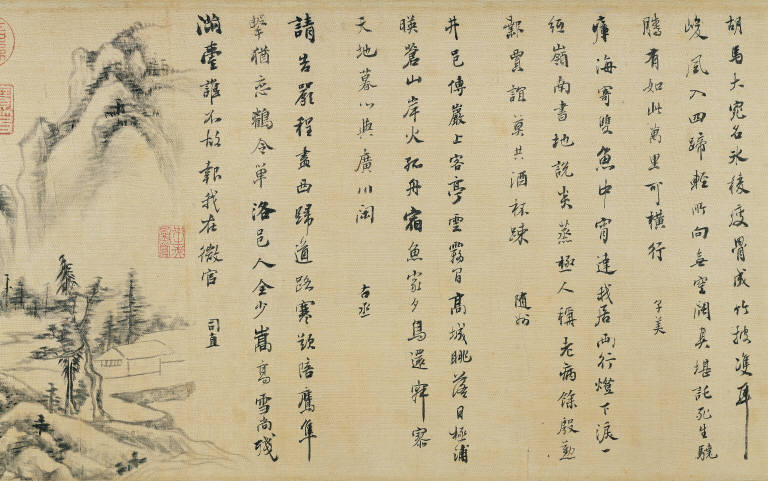 胡馬大宛名氷稜瘦骨成竹披雙耳
峻風入四蹄輕所向無空闊真堪託死生驍
騰有如此萬里可橫行 子美
瘴海寄雙魚中宵達我居兩行燈下淚一
紙嶺南書地說炎蒸極人稱老病餘殷勤
報賈誼莫共酒杯踈 隨州
井邑傅巖上客亭雲霧間高城眺落日極浦
暎蒼山岸火孤舟宿魚家夕鳥還寂寥
天地暮心與廣川閑 右丞
請告嚴程盡西歸道路寒欲陪鷹隼
擊猶恋鶴令單洛邑人全少嵩高雪尚殘
滿臺誰不故報我在微官 司直